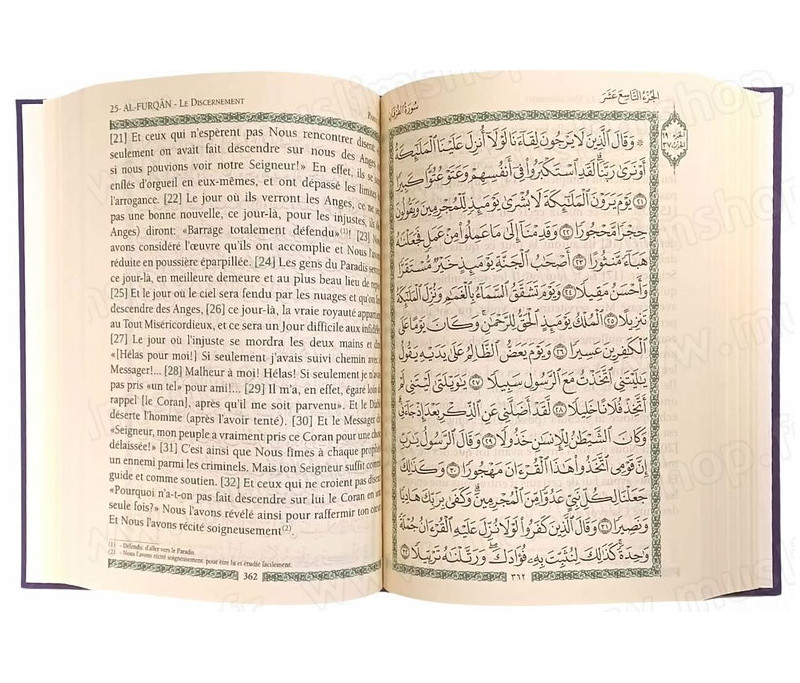 25- AL-FURQÂN - LE DISCERNEMENT
[21] Et ceux qui n'espèrent pas Nous rencontrer disent:
seulement on avait fait descendre sur nous des Anges
si nous pouvions voir notre Seigneur!» En effet, ils se
enflés d'orgueil en eux-mêmes, et ont dépassé les limites
l'arrogance. [22] Le jour où ils verront les Anges, ce ne
pas une bonne nouvelle, ce jour-là, pour les injustes, ils
Anges) diront: «Barrage totalement défendu»(1)! [23] Nous
avons considéré l'œuvre qu'ils ont accomplie et Nous l'avons
réduite en poussière éparpillée. [24] Les gens du Paradis seront
ce jour-là, en meilleure demeure et au plus beau lieu de repos
[25] Et le jour où le ciel sera fendu par les nuages et qu'on
descendre des Anges, [26] ce jour-là, la vraie royauté appartient
au Tout Miséricordieux, et ce sera un Jour difficile aux infidèles
[27] Le jour où l'injuste se mordra les deux mains et dira
«[Hélas pour moi!] Si seulement j'avais suivi chemin avec
Messager!... [28] Malheur à moi! Hélas! Si seulement je n'avais
pas pris «un tel» pour ami!... [29] Il m'a, en effet, égaré loin du
rappel [le Coran], après qu'il me soit parvenu». Et le Diable
déserte l'homme (après l'avoir tenté). [30] Et le Messager dit
«Seigneur, mon peuple a vraiment pris ce Coran pour une chose
délaissée!» [31] C'est ainsi que Nous fîmes à chaque prophète
un ennemi parmi les criminels. Mais ton Seigneur suffit comme
guide et comme soutien. [32] Et ceux qui ne croient pas disent:
«Pourquoi n'a-t-on pas fait descendre sur lui le Coran en une
seule fois?» Nous l'avons révélé ainsi pour raffermir ton cœur
Et Nous l'avons récité soigneusement(2).
(1) - Défendu: d'aller vers le Paradis.
(2) - Nous l'avons récité soigneusement: pour être lu et étudié facilement.
362
سُورَةُ الفُرْقَانِ
الجزء التاسع عشر
الجزء ١٩
الحزب ٣٧
۞ وَقَالَ ٱلَّذِينَ لَا يَرْجُونَ لِقَآءَنَا لَوْلَآ أُنزِلَ عَلَيْنَا ٱلْمَلَٰٓئِكَةُ
أَوْ نَرَىٰ رَبَّنَا ۗ لَقَدِ ٱسْتَكْبَرُوا۟ فِىٓ أَنفُسِهِمْ وَعَتَوْ عُتُوًّا كَبِيرًا
٢١ يَوْمَ يَرَوْنَ ٱلْمَلَٰٓئِكَةَ لَا بُشْرَىٰ يَوْمَئِذٍ لِّلْمُجْرِمِينَ وَيَقُولُونَ
حِجْرًا مَّحْجُورًا ٢٢ وَقَدِمْنَآ إِلَىٰ مَا عَمِلُوا۟ مِنْ عَمَلٍ فَجَعَلْنَٰهُ
هَبَآءً مَّنثُورًا ٢٣ أَصْحَٰبُ ٱلْجَنَّةِ يَوْمَئِذٍ خَيْرٌ مُّسْتَقَرًّا
وَأَحْسَنُ مَقِيلًا ٢٤ وَيَوْمَ تَشَقَّقُ ٱلسَّمَآءُ بِٱلْغَمَٰمِ وَنُزِّلَ ٱلْمَلَٰٓئِكَةُ
تَنزِيلًا ٢٥ ٱلْمُلْكُ يَوْمَئِذٍ ٱلْحَقُّ لِلرَّحْمَٰنِ ۚ وَكَانَ يَوْمًا عَلَى
ٱلْكَٰفِرِينَ عَسِيرًا ٢٦ وَيَوْمَ يَعَضُّ ٱلظَّالِمُ عَلَىٰ يَدَيْهِ يَقُولُ
يَٰلَيْتَنِى ٱتَّخَذْتُ مَعَ ٱلرَّسُولِ سَبِيلًا ٢٧ يَٰوَيْلَتَىٰ لَيْتَنِى لَمْ
أَتَّخِذْ فُلَانًا خَلِيلًا ٢٨ لَّقَدْ أَضَلَّنِى عَنِ ٱلذِّكْرِ بَعْدَ إِذْ جَآءَنِى
وَكَانَ ٱلشَّيْطَٰنُ لِلْإِنسَٰنِ خَذُولًا ٢٩ وَقَالَ ٱلرَّسُولُ يَٰرَبِّ
إِنَّ قَوْمِى ٱتَّخَذُوا۟ هَٰذَا ٱلْقُرْءَانَ مَهْجُورًا ٣٠ وَكَذَٰلِكَ
جَعَلْنَا لِكُلِّ نَبِىٍّ عَدُوًّا مِّنَ ٱلْمُجْرِمِينَ ۗ وَكَفَىٰ بِرَبِّكَ هَادِيًا
وَنَصِيرًا ٣١ وَقَالَ ٱلَّذِينَ كَفَرُوا۟ لَوْلَا نُزِّلَ عَلَيْهِ ٱلْقُرْءَانُ جُمْلَةً
وَٰحِدَةً ۚ كَذَٰلِكَ لِنُثَبِّتَ بِهِۦ فُؤَادَكَ ۖ وَرَتَّلْنَٰهُ تَرْتِيلًا ٣٢
٣٦٢